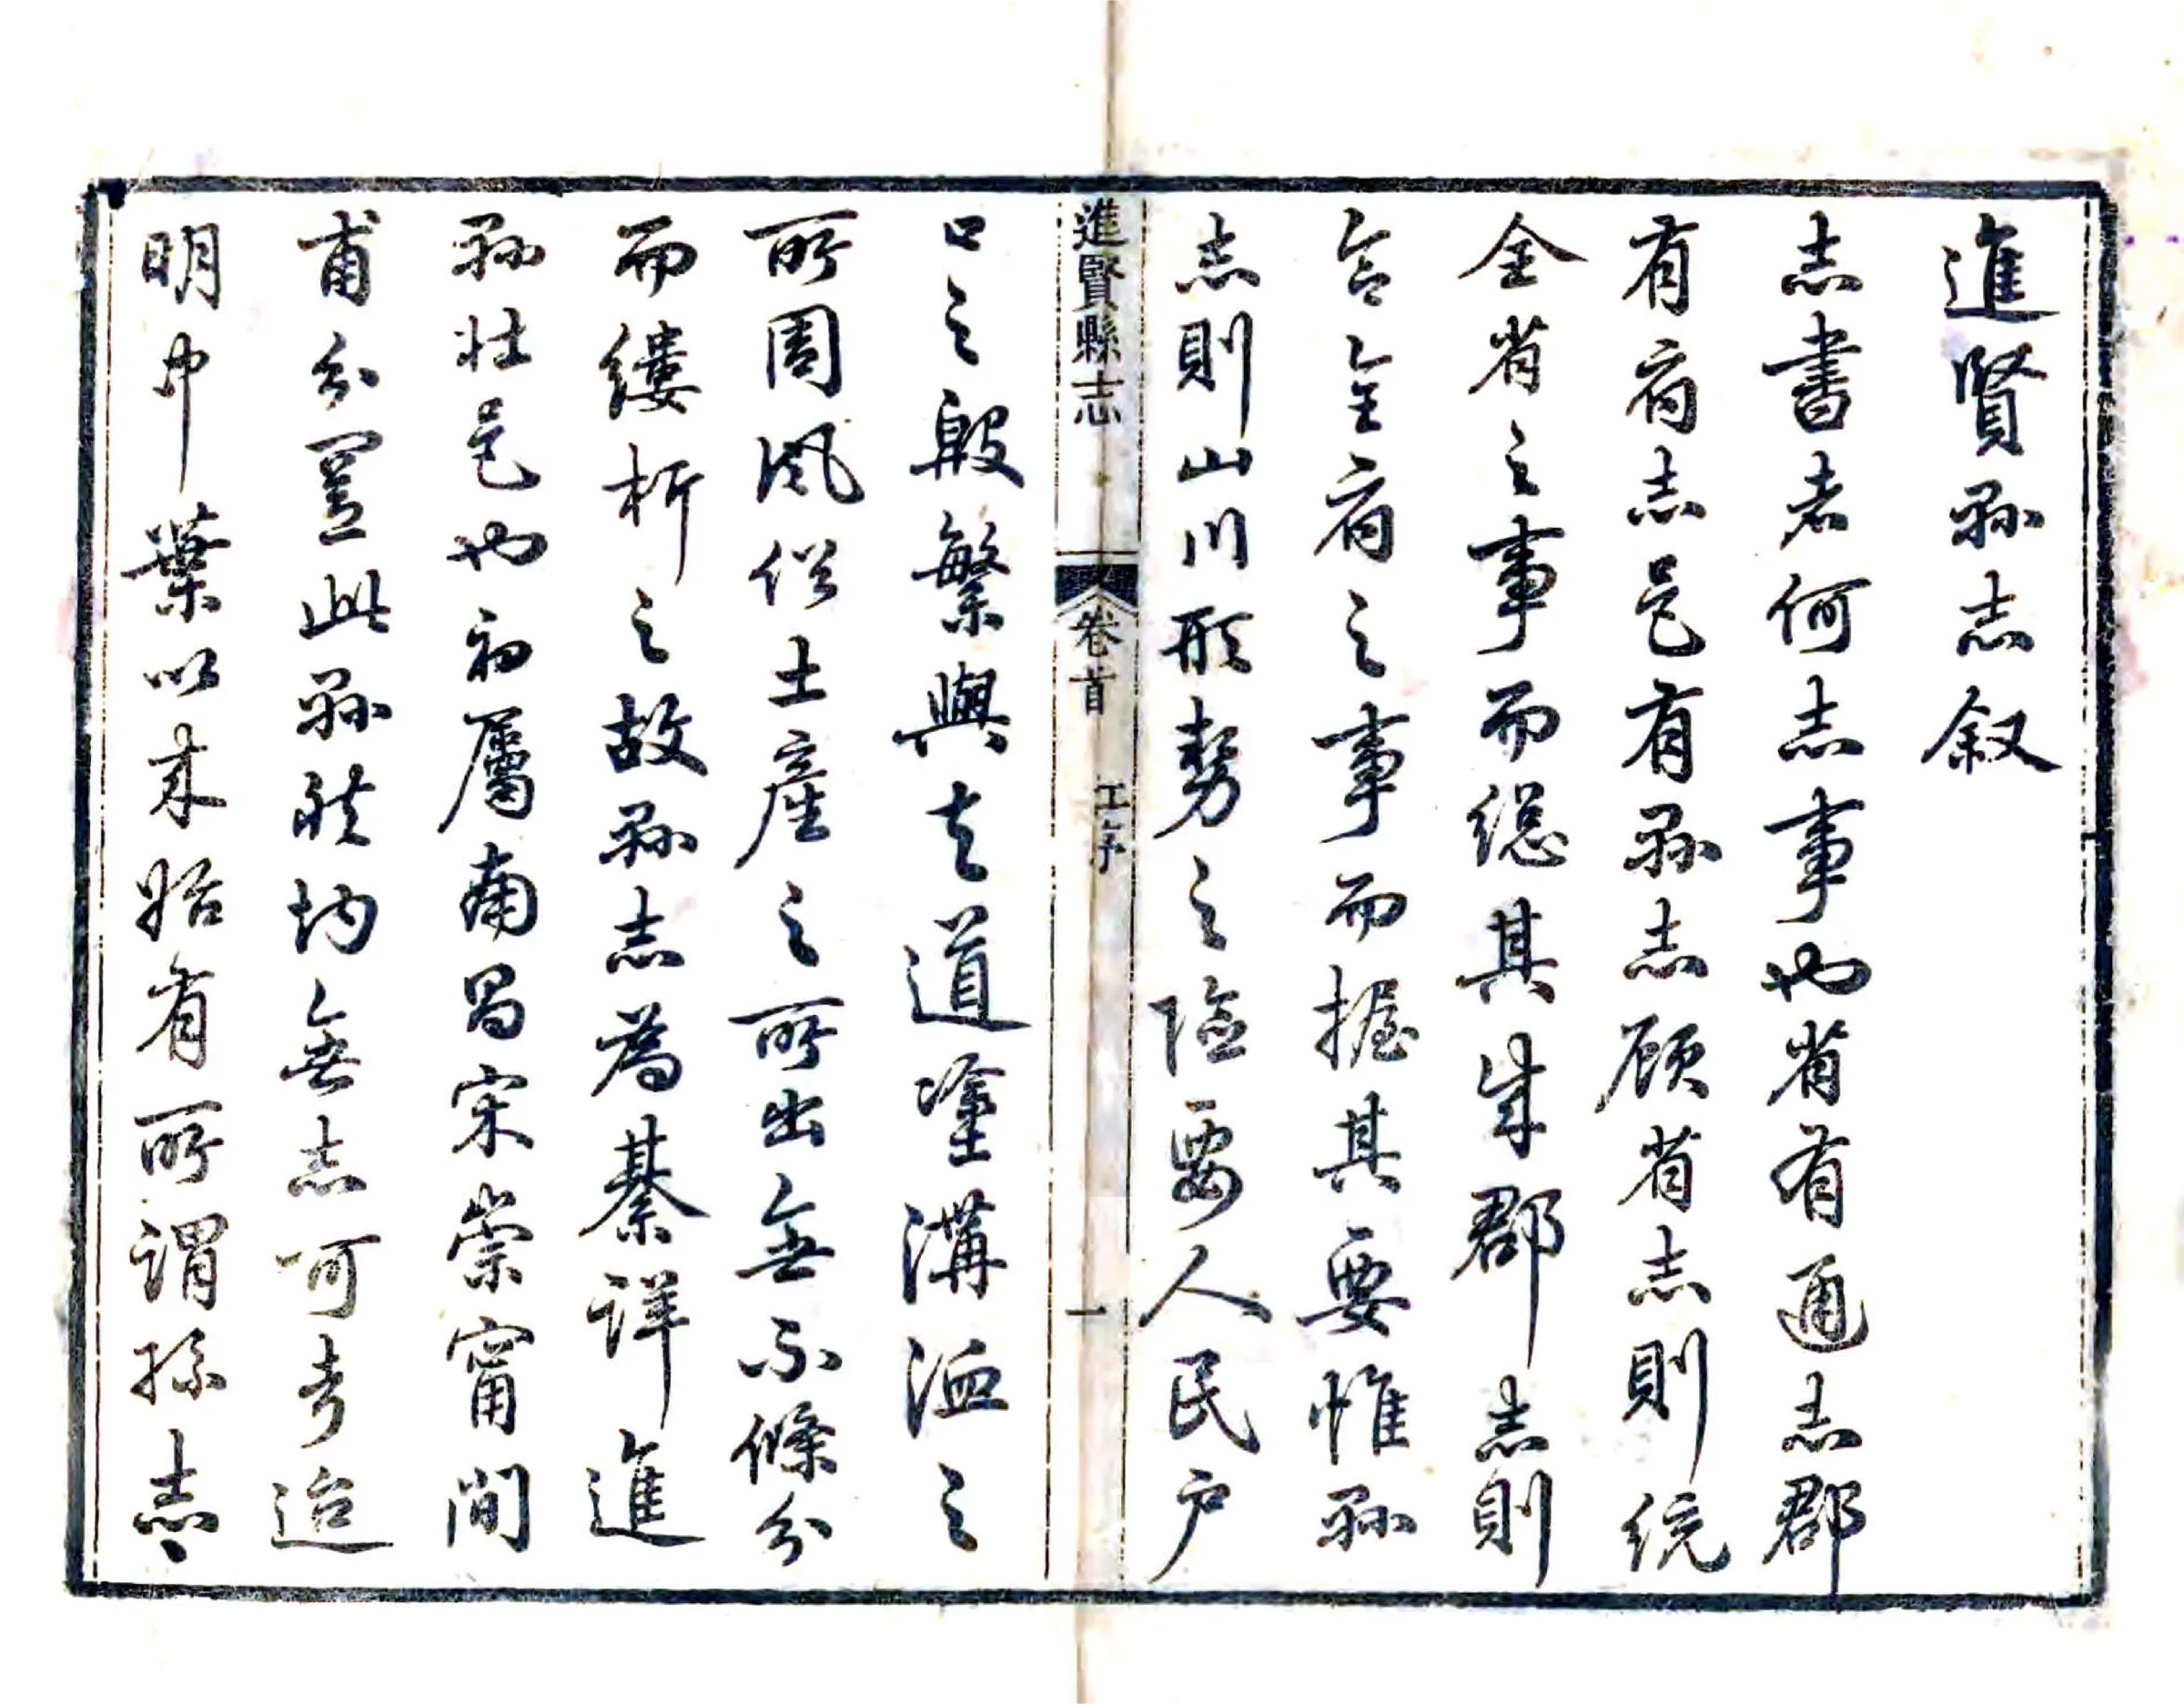 進賢縣志叙
志書者何志事也省有通志郡
有府志邑有縣志顧省志則統
全省之事而總其成郡志則
合全府之事而握其要惟縣
志則山川形勢之險要人民户
進賢縣志
卷首
王序
一
口之殷繁與夫道塗溝洫之
所周風俗土產之所出無不條分
而縷析之故縣志為綦詳進
縣壯邑也初屬南昌宋崇甯間
甫分置此縣然均無志可考迨
明中葉以來始有所謂縣志